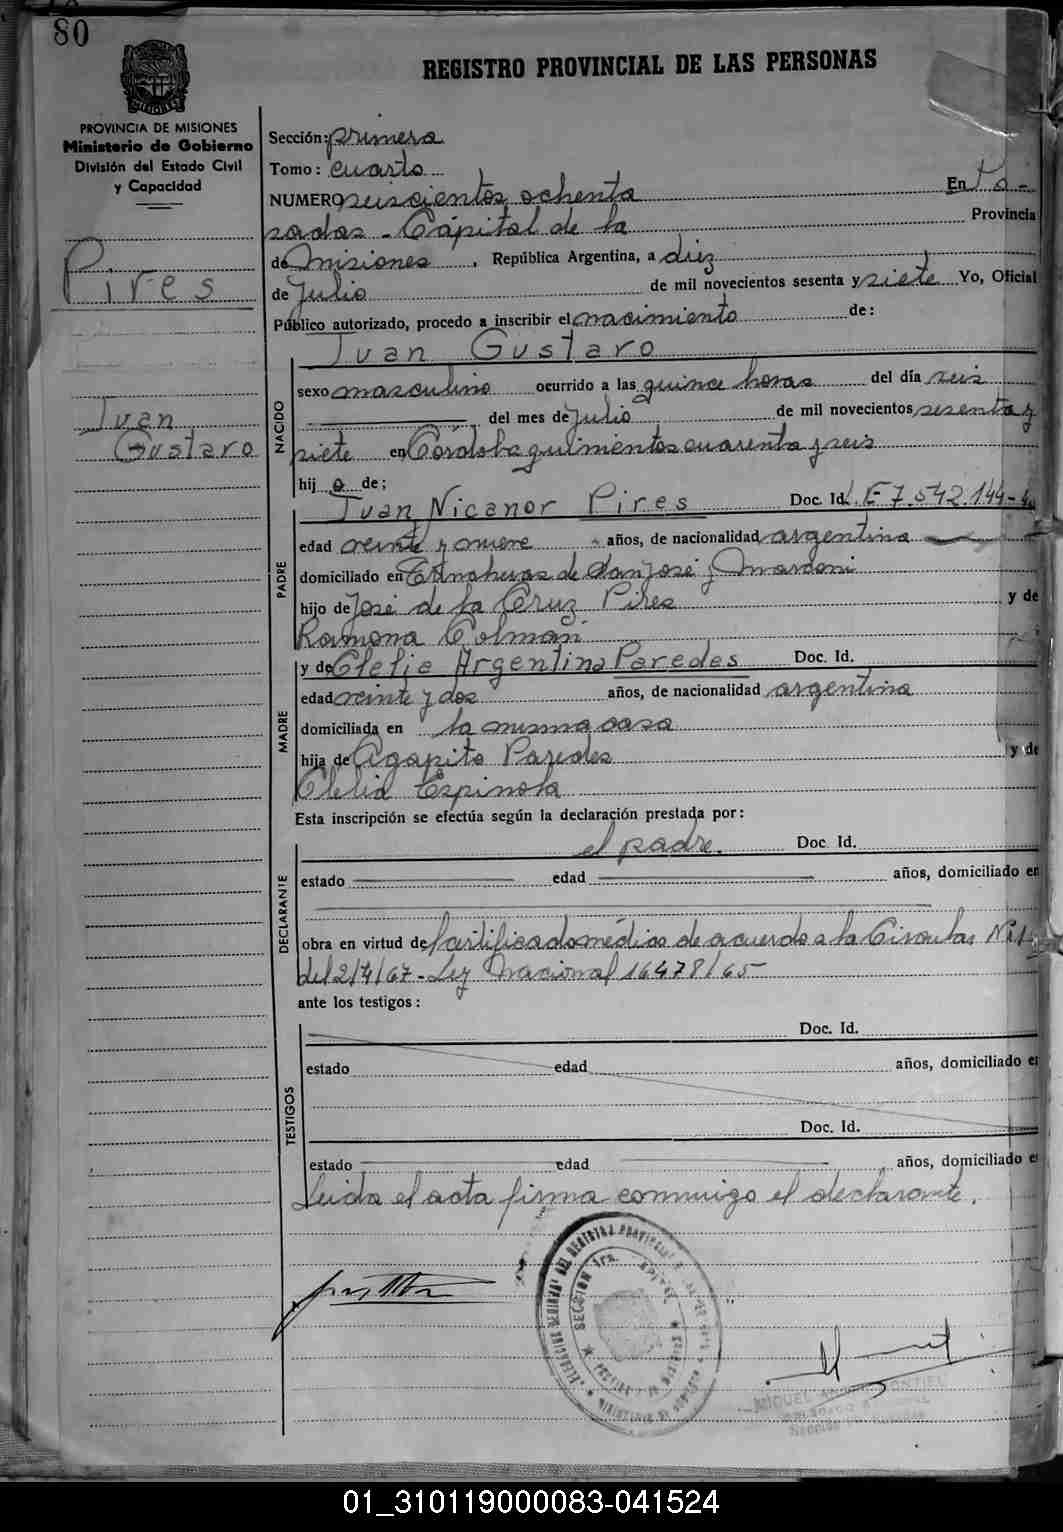 80
REGISTRO PROVINCIAL DE LAS PERSONAS
PROVINCIA DE MISIONES
Ministerio de Gobierno
División del Estado Civil
y Capacidad
Pires
Juan
Gustavo
Sección: primera
Tomo: cuarto
NUMERO seiscientos ochenta En Po-
sadas - Cápital de la Provincia
de Misiones, República Argentina, a diez
de Julio de mil novecientos sesenta y siete Yo, Oficial
Público autorizado, procedo a inscribir el nacimiento de:
Juan Gustavo
NACIDO
sexo masculino ocurrido a las quince horas del día seis
del mes de Julio de mil novecientos sesenta y
siete en Córdoba quinientos cuarenta y seis
hijo de;
Juan Nicanor Pires Doc. Id. L.E 7.542.144
PADRE
edad veinte y nueve años, de nacionalidad argentina
domiciliado en Trincheras de San José y Marconi
hijo de José de la Cruz Pires y de
Ramona Colman
y de Clelia Argentina Paredes Doc. Id.
MADRE
edad veinte y dos años, de nacionalidad argentina
domiciliada en la misma casa
hija de Agapito Paredes y de
Clelia Espinola
Esta inscripción se efectúa según la declaración prestada por:
el padre. Doc. Id.
DECLARANTE
estado edad años, domiciliado en
obra en virtud de Certificado médico de acuerdo a la Circular Nº 1
del 2/4/67 - Ley Nacional 16478/65
ante los testigos:
TESTIGOS
Doc. Id.
estado edad años, domiciliado e
Doc. Id.
estado edad años, domiciliado e
Leida el acta firma conmigo el declarante.
SECCION 1ra.
01_310119000083-041524